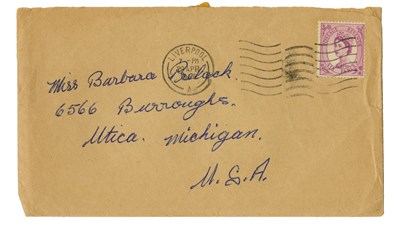 LIVERPOOL
PM
APR
A
Miss Barbara
6566 Burroughs.
Utica. Michigan.
U.S.A.